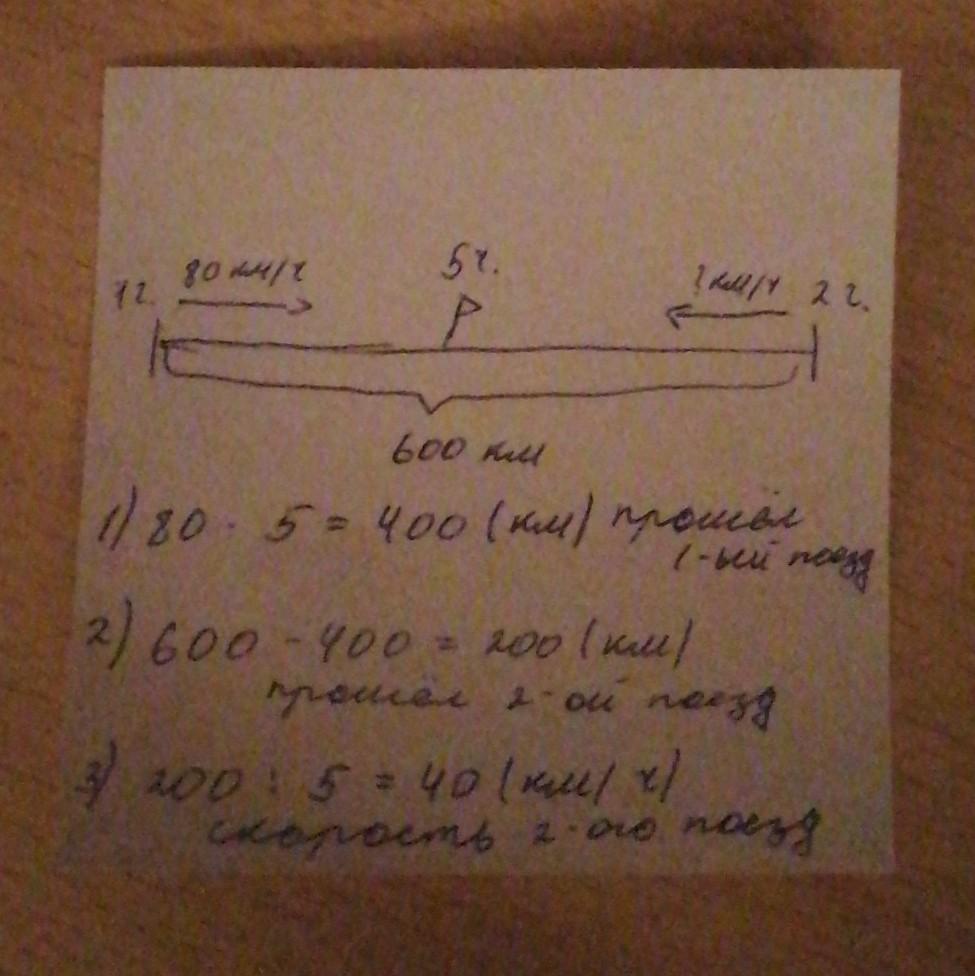 5ч.
80 км/ч ? км/ч
1 г. 2 г.
600 км
1) 80 · 5 = 400 (км) прошёл
1-ый поезд
2) 600 - 400 = 200 (км)
прошёл 2-ой поезд
3) 200 : 5 = 40 (км/ч)
скорость 2-ого поезд